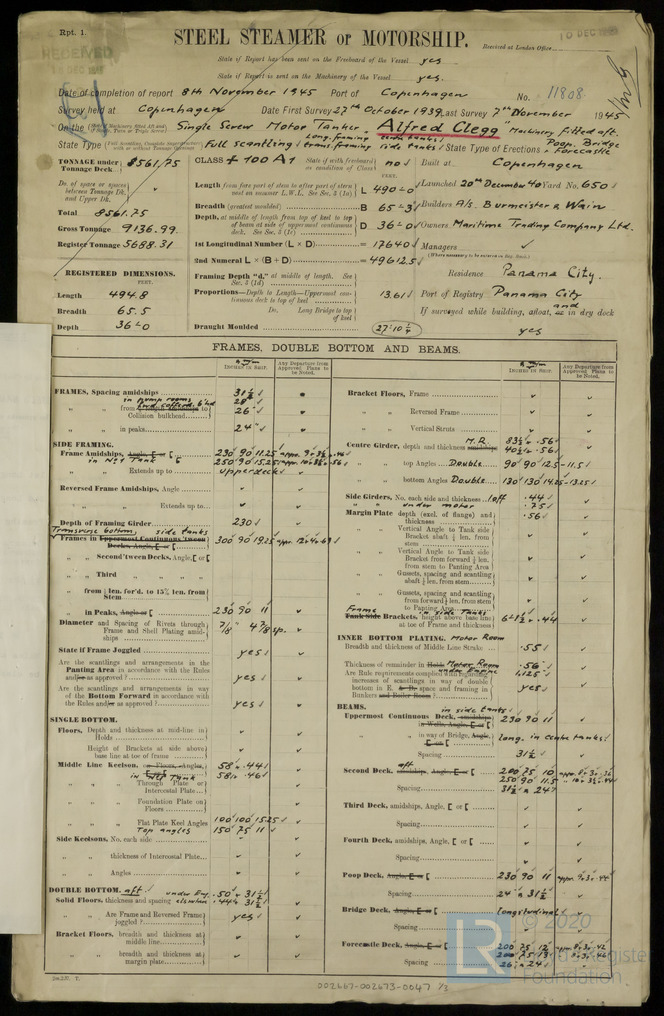 Rpt. 1.
STEEL STEAMER or MOTORSHIP.
RECEIVED
10 DEC
Received at London Office
State if Report has been sent on the Freeboard of the Vessel yes
State if Report is sent on the Machinery of the Vessel yes.
Date of completion of report 8th November 1945 Port of Copenhagen No. 11808
Survey held at Copenhagen Date First Survey 27th October 1939 Last Survey 7th November 1945
On the Single Screw Motor Tanker, Alfred Clegg Machinery fitted aft.
State Type Full scantling long. framing centre tanks trans. framing side tanks State Type of Erections Poop, Bridge & Forecastle
TONNAGE under Tonnage Deck 8561.75
Do. of space or spaces between Tonnage Dk. and Upper Dk.
Total 8561.75
Gross Tonnage 9136.99
Register Tonnage 5688.31
REGISTERED DIMENSIONS.
FEET.
Length 494.8
Breadth 65.5
Depth 36-0
CLASS + 100 A1 State if with freeboard as condition of Class no
Length from fore part of stem to after part of stern post on summer L.W.L. See Sec. 3 (1a) L 490-0
Breadth (greatest moulded) B 65-3
Depth, at middle of length from top of keel to top of beam at side of uppermost continuous deck. See Sec. 3 (1c) D 36-0
1st Longitudinal Number (L × D) = 17640
2nd Numeral L × (B + D) = 49612.5
Framing Depth "d," at middle of length. See Sec. 3 (1d)
Proportions—Depth to Length—Uppermost continuous deck to top of keel 13.61
Do. Long Bridge to top of keel
Draught Moulded 27'10½"
Built at Copenhagen
Launched 20th December 40 Yard No. 650
Builders A/s. Burmeister & Wain
Owners Maritime Trading Company Ltd.
Managers
(Where necessary to be entered in Reg. Book.)
Residence Panama City.
Port of Registry Panama City
If surveyed while building, afloat, and in dry dock
yes
FRAMES, DOUBLE BOTTOM AND BEAMS.
INCHES IN SHIP.
Any Departure from Approved Plans to be Noted.
INCHES IN SHIP.
Any Departure from Approved Plans to be Noted.
FRAMES, Spacing amidships 31½
in pump rooms 28"
Collision bulkhead 26"
" " in peaks 24"
SIDE FRAMING.
Frame Amidships, Angle, 230 90 11.25
in No 1 Tank 250 90 15.25
" " Extends up to upper deck
Reversed Frame Amidships, Angle
" " Extends up to
Depth of Framing Girder 230
Transverse bottom, side tanks
Frames in Uppermost Continuous 'tween Decks, Angle, [ or [ 300 90 19.25
" " Second 'tween Decks, Angle, [ or [
" " Third " "
" " from ½ len. for'd. to 15% len. from Stem
" " in Peaks, Angle or [ 230 90 11
Diameter and Spacing of Rivets through Frame and Shell Plating amidships 7/8" 4 7/8 sp.
State if Frame Joggled yes
Are the scantlings and arrangements in the Panting Area in accordance with the Rules and/or as approved? yes
Are the scantlings and arrangements in way of the Bottom Forward in accordance with the Rules and/or as approved? yes
SINGLE BOTTOM.
Floors, Depth and thickness at mid-line in Holds
Height of Brackets at side above base line at toe of frame
Middle Line Keelson, on Floors, Angles, 58" .44
58" .46
" " Through Plate or Intercostal Plate
" " Foundation Plate on Floors
" " Flat Plate Keel Angles 100 100 15.25
Top angles 150 75 11
Side Keelsons, No. each side
" " thickness of Intercostal Plate
" " Angles
DOUBLE BOTTOM. aft. under Eng. .50 31½
Solid Floors, thickness and spacing elsewhere .44 31½
" " Are Frame and Reversed Frame joggled? yes
Bracket Floors, breadth and thickness at middle line
" " breadth and thickness at margin plate
Bracket Floors, Frame
" " Reversed Frame
" " Vertical Struts
Centre Girder, depth and thickness amidships M.R. 83½ .56
40½ .56
" " top Angles Double 90 90 12.5-11.5
" " bottom Angles Double 130 130 14.25-13.25
Side Girders, No. each side and thickness 1 off .44
under motor .75
Margin Plate depth (excl. of flange) and thickness .56
" " Vertical Angle to Tank side Bracket abaft ¼ len. from stem
" " Vertical Angle to Tank side Bracket from forward ¼ len. from stem to Panting Area
" " Gussets, spacing and scantling abaft ¼ len. from stem
" " Gussets, spacing and scantling from forward ¼ len. from stem to Panting Area
Frame in side Tanks
Tank Side Brackets, height above base line at toe of Frame and thickness .44
INNER BOTTOM PLATING. Motor Room
Breadth and thickness of Middle Line Strake .55
Thickness of remainder in Hold Motor Room .56
under Engine 1.125
Are Rule requirements complied with regarding increases of scantlings in way of double bottom in E. & B. space and framing in Bunkers and Boiler Room? yes
BEAMS.
in side tanks
Uppermost Continuous Deck, amidships 230 90 11
in Wells, Angle, [ or [
" " in way of Bridge, Angle, [ or [ long. in centre tanks
Spacing 31½
Second Deck, aft amidships, Angle, [ or [ 200 75 10
250 90 11.5
31½ & 24
Third Deck, amidships, Angle, [ or [
Spacing
Fourth Deck, amidships, Angle, [ or [
Spacing
Poop Deck, Angle, [ or [ 230 90 11
Spacing 24 & 31½
Bridge Deck, Angle, [ or [ longitudinal
Spacing
Forecastle Deck, Angle, [ or [ 200 75 12
200 75 13
Spacing 26 & 24
002667-002673-0047 1/3
LR
© 2020
Lloyd's Register
Foundation